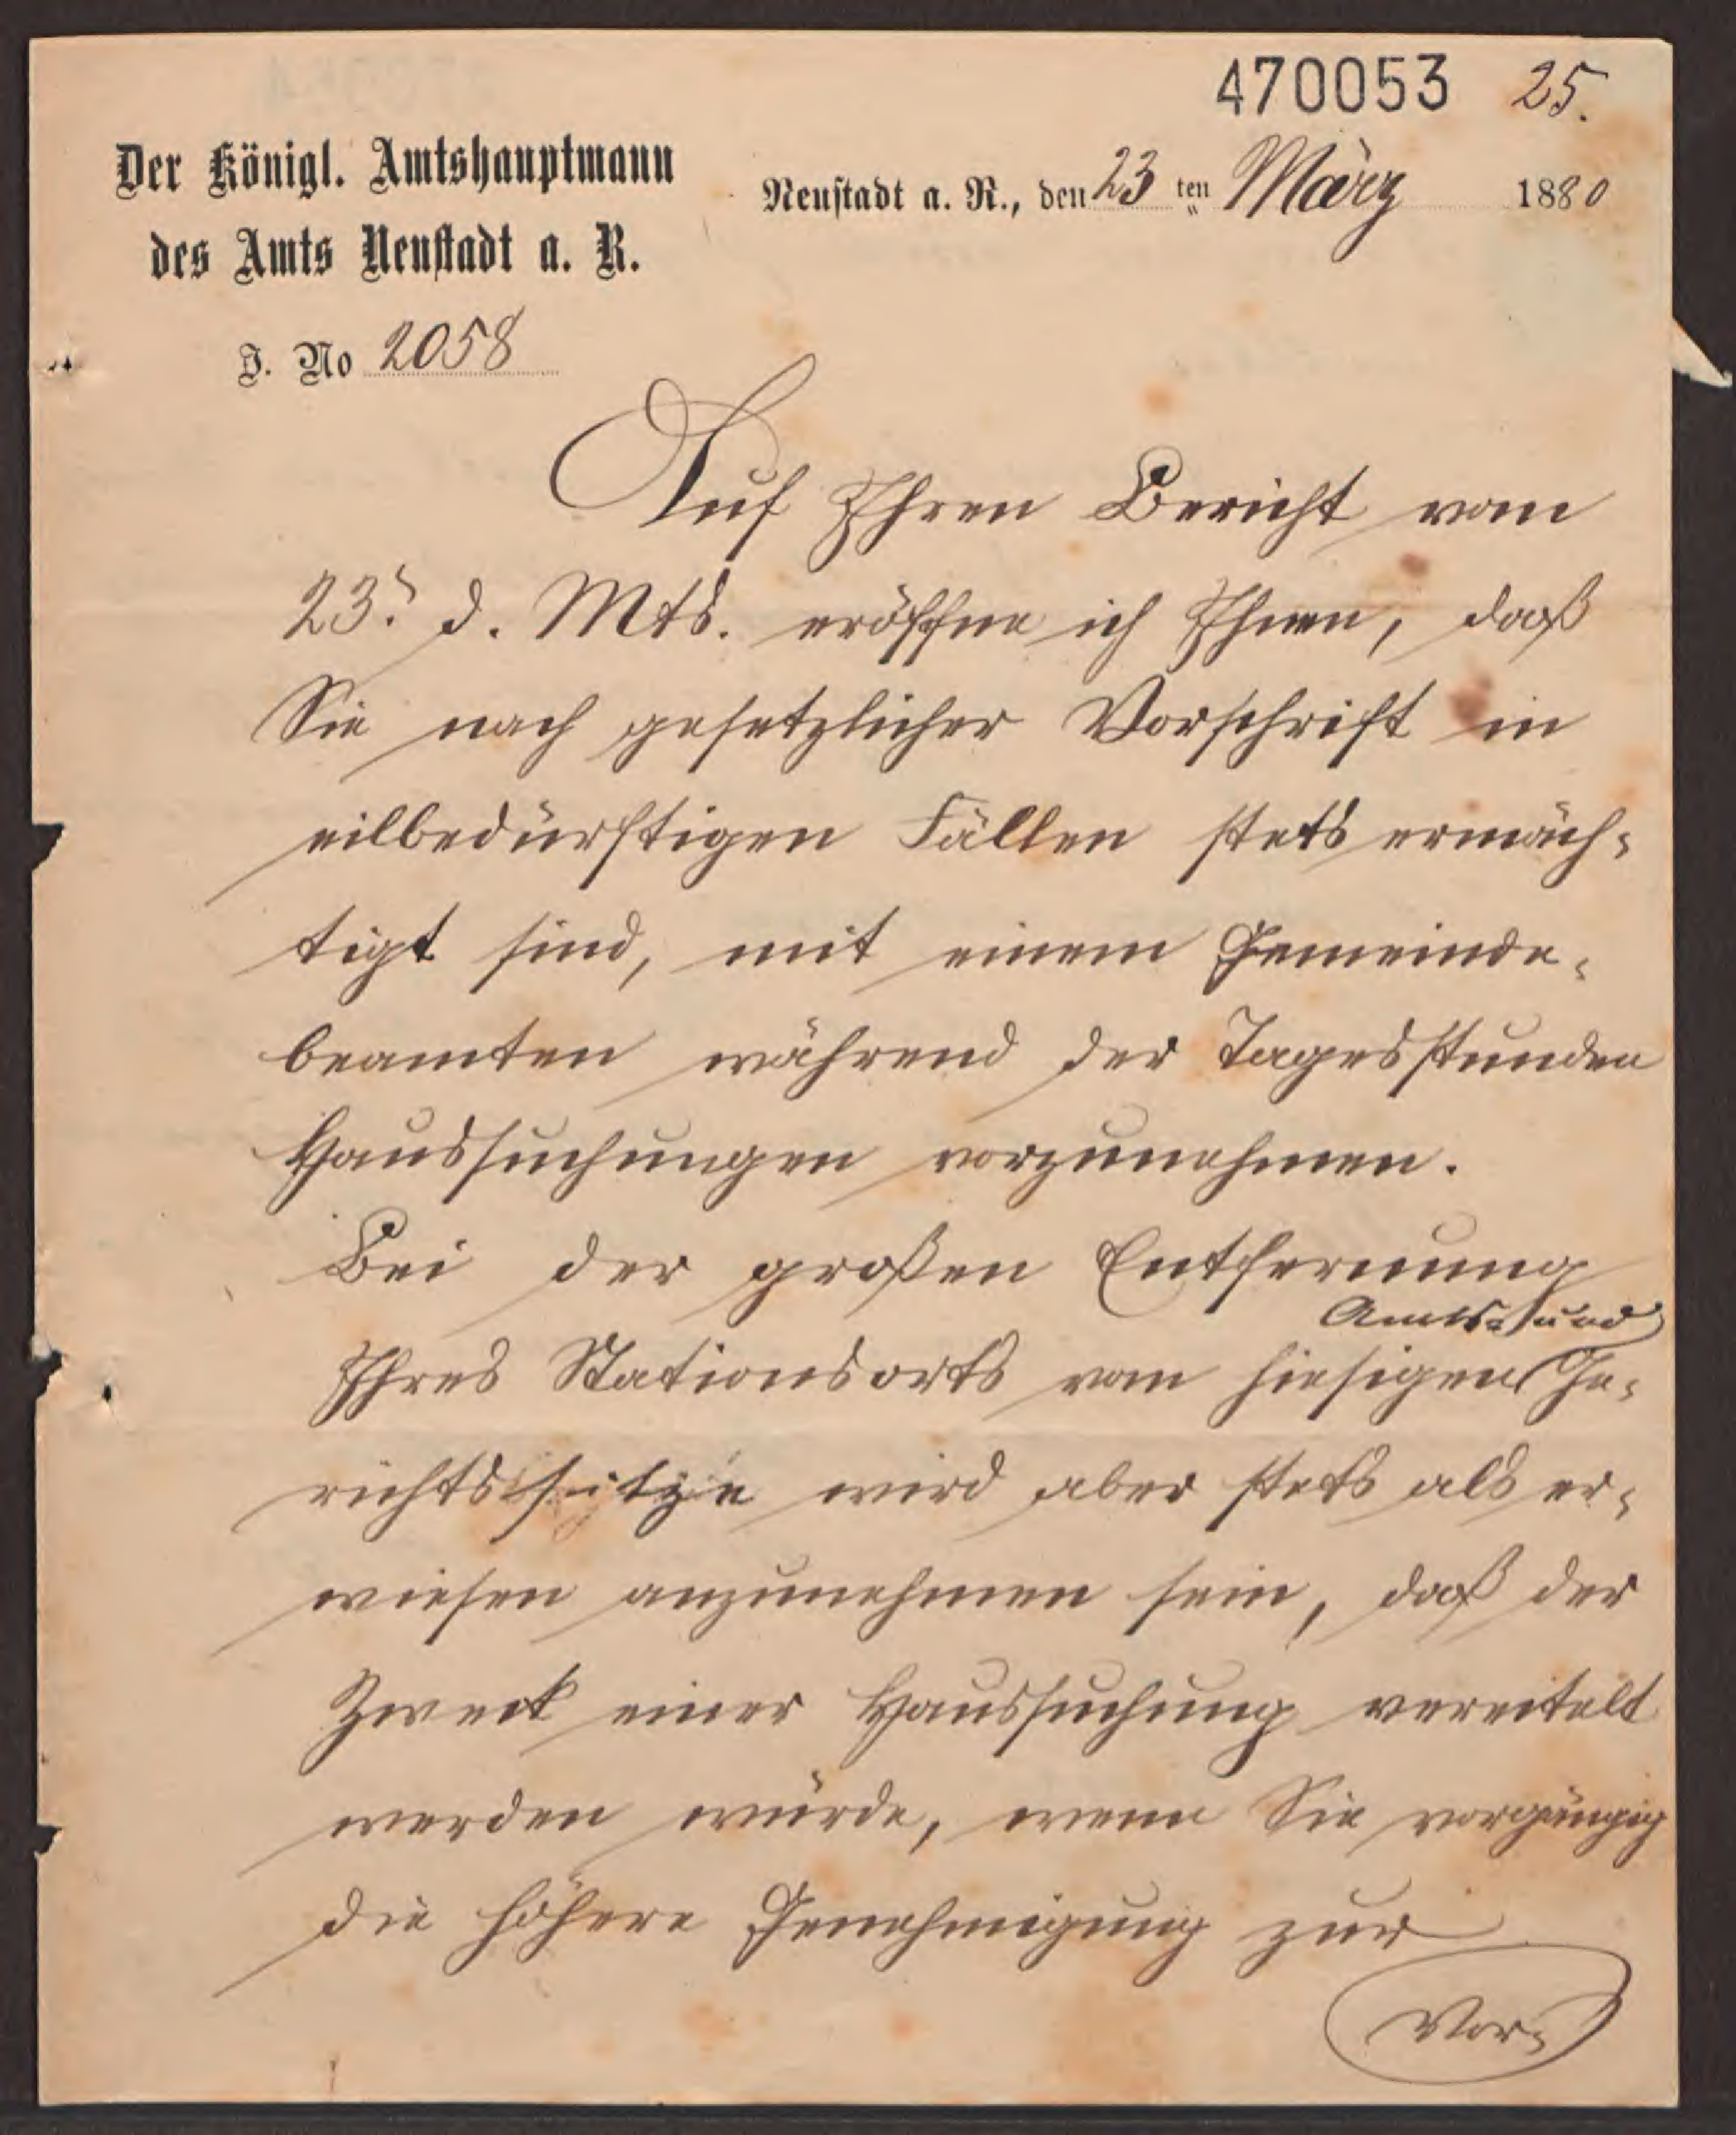 470053 25.
Der Königl. Amtshauptmann
des Amts Neustadt a. R.
Neustadt a. R., den 23 ten März 1880
J. No 2058
Auf Ihren Bericht vom
23. d. Mts. eröffne ich Ihnen, daß
Sie nach gesetzlicher Vorschrift in
eilbedürftigen Fällen stets ermäch-
tigt sind, mit einem Gemeinde-
beamten während der Tagesstunden
Haussuchungen vorzunehmen.
Bei der großen Entfernung
Amts- und
Ihres Stationsorts vom hiesigen Ge-
richtssitze wird aber stets als er-
wiesen anzunehmen sein, daß der
Zweck einer Haussuchung vereitelt
werden würde, wenn Sie vorgängig
die höhere Genehmigung zur
Vor-